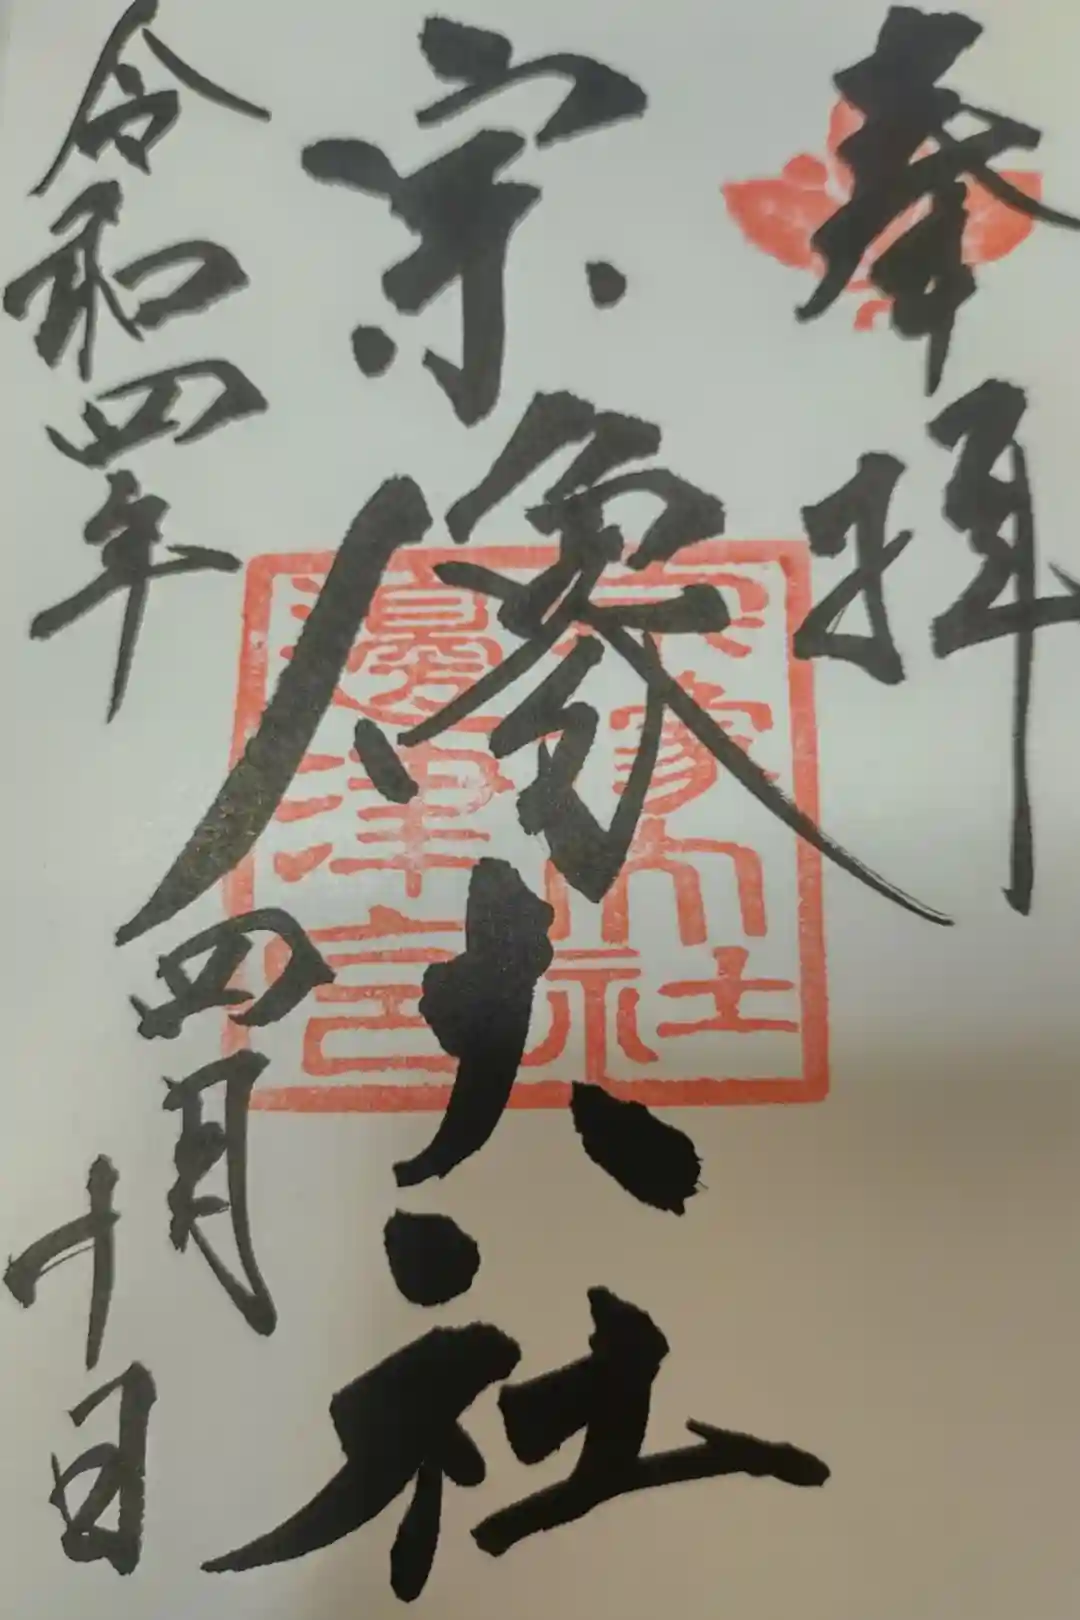 奉拝
宗像大社
宗像大社
邊津宮
令和四年
四月
十日